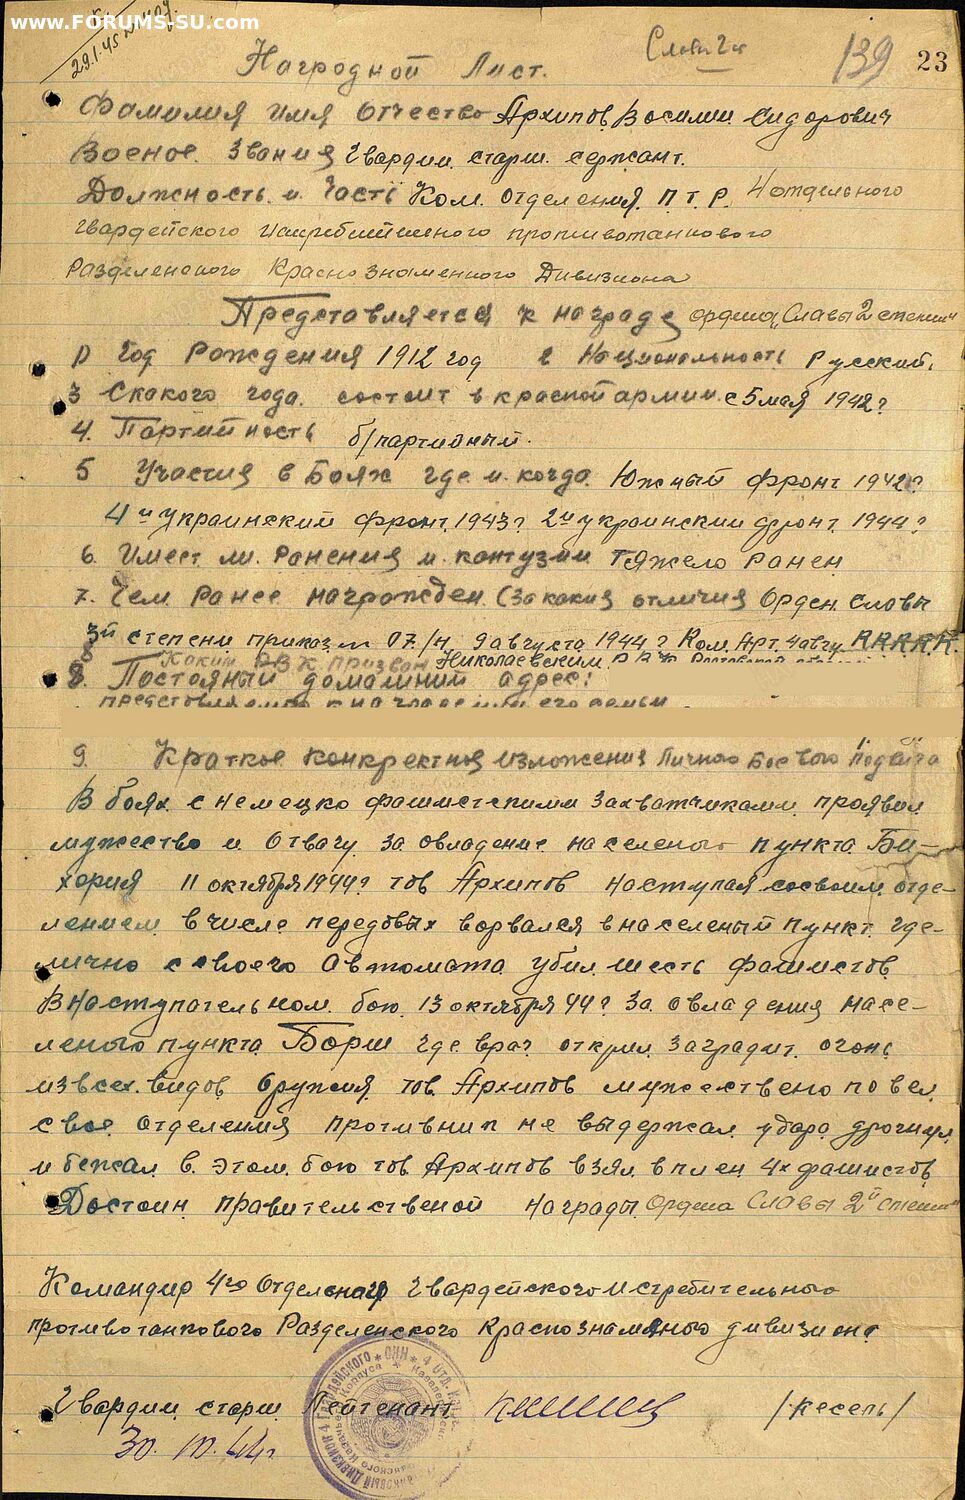 www.FORUMS-SU.com
29.1.45
Славы 2 ст
139 23
Наградной Лист.
Фамилия имя отчество Архипов Василий Сидорович
Военое звания Гвардии старш. сержант.
Должность и часть Ком. отделения П.Т.Р. 4 отдельного
гвардейского истребительного противотанкового
Разделенского Краснознаменного Дивизиона
Представляется к награде ордена „Славы 2 степени"
1) Год Рождения 1912 год 2 Национальность Русский.
3 Скакого года состоит в красной армии с 5 мая 1942 г
4. Партийность б/партионый.
5 Участия в Боях где и когда Южный Фронт 1942 г
4й Украинский Фронт 1943 г 2й украинский фронт 1944 г
6. Имеет ли Ранения и контузии Тяжело Ранен
7. Чем Ранее награжден (за какия отличия Орден Славы
3й степени приказ 07/н 9 августа 1944 г Ком. Арт. 4 гвгу К.К.К.К.К.
Каким РВК призван Николаевским РВК
8. Постояный домашний адрес:
представляемого к награждению и его семьи
9. Краткое конкретное изложения личного боевого подвига
В боях с немецко фашистскими захватчиками проявил
мужество и отвагу за овладение населеного пункта Би-
хария 11 октября 1944 г тов Архипов наступая сосвоим отде-
лением в числе передовых ворвался в населеный пункт где-
лично с своего автомата убил шесть фашистов
В наступательном бою 13 октября 44 г за овладения насе-
леного пункта Борш где враг открыл заградит. огонь
из всех видов оружия тов. Архипов мужествено повел
свое отделения противник не выдержал удара дрогнул
и бежал в этом бою тов Архипов взял в плен 4х фашистов
Достоин правительственой награды Ордена Славы 2й степени
Командир 4го Отделного Гвардейского Истребительного
противотанкового Разделенского Краснознамёного дивизиона
Гвардии старш. Лейтенант /Кесель/
30.10.44 г